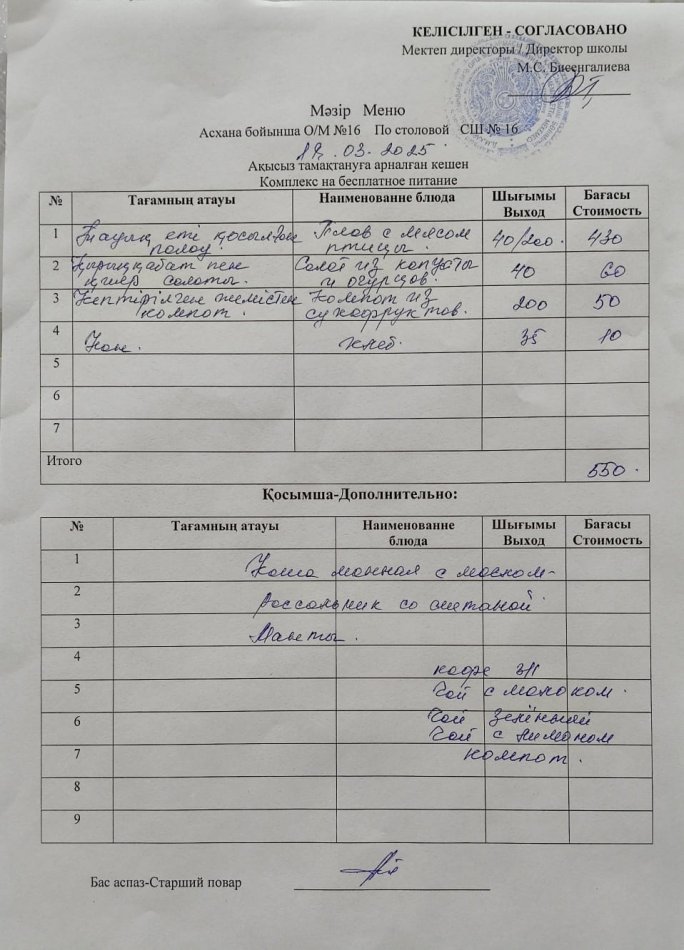 КЕЛІСІЛГЕН - СОГЛАСОВАНО
Мектеп директоры / Директор школы
М.С. Бисенгалиева
Мәзір Меню
Асхана бойынша О/М №16 По столовой СШ № 16
.03.2025
Ақысыз тамақтануға арналған кешен
Комплекс на бесплатное питание
№ Тағамның атауы Наименование блюда Шығымы Выход Бағасы Стоимость
1 Тауық еті қосылған палау. Плов с мясом птицы. 40/200. 430
2 Қырыққабат пен қияр салаты. Салат из капусты и огурцов. 40 60
3 Кептірілген жемістен компот. Компот из сухофруктов. 200 50
4 Нан. хлеб. 35 10
5
6
7
Итого 550.
Қосымша-Дополнительно:
№ Тағамның атауы Наименование блюда Шығымы Выход Бағасы Стоимость
1 Каша манная с маслом-
2 Рассольник со сметаной
3 Манты.
4 кофе 3/1
5 Чай с молоком.
6 Чай зелёный
Чай с лимоном
7 компот.
8
9
Бас аспаз-Старший повар